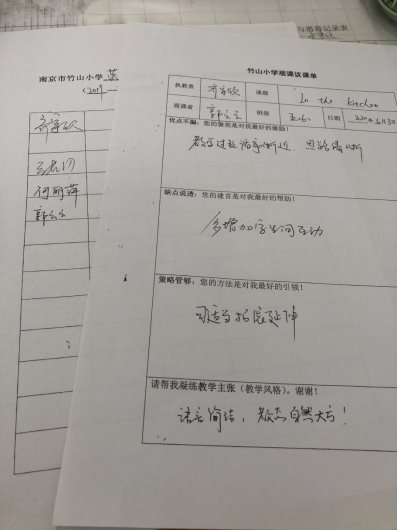 与沿寄记录表
南京市竹山小学
(2019
齐学欣
何丽萍
郭云云
竹山小学观课议课单
执教者 齐学欣 课题 In the kitchen
观课者 郭云云 班级 日期
优点不漏：您的褒奖是对我最好的激励！
教学过程循序渐进，思路清晰
缺点说透：您的建言是对我最好的帮助！
多增加学生间互动
策略管够：您的方法是对我最好的引领！
可适当拓展延伸
请帮我凝练教学主张（教学风格）。谢谢！
语言简洁，教态自然大方！